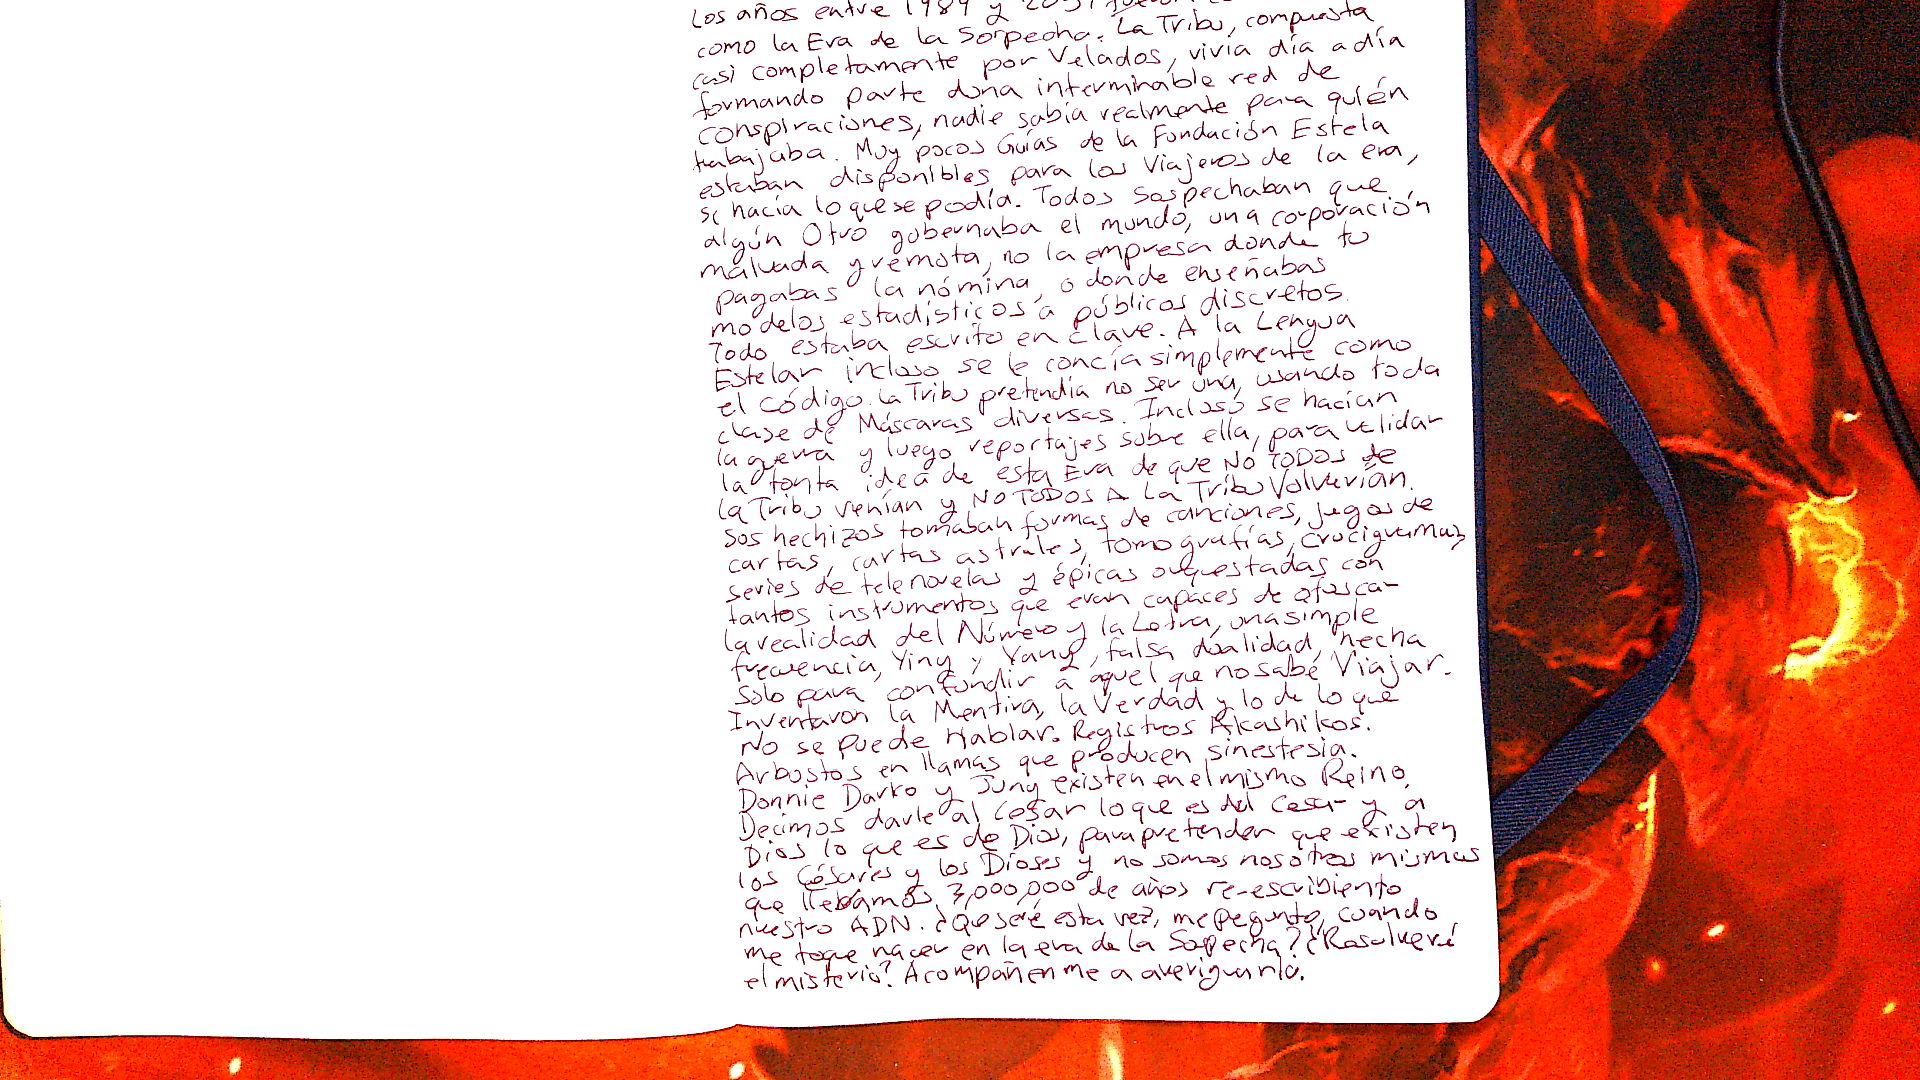 Los años entre 1989 y
como la Era de la Sorpecha. La Tribu, compuesta
casi completamente por Velados, vivía día a día
formando parte duna interminable red de
conspiraciones, nadie sabía realmente para quién
trabajaba. Muy pocos Guías de la Fundación Estela
estaban disponibles para los Viajeros de la era,
se hacía lo que se podía. Todos sospechaban que
algún Otro gobernaba el mundo, una corporación
malvada y remota, no la empresa donde tu
pagabas la nómina, o donde enseñabas
modelos estadísticos a públicos discretos.
Todo estaba escrito en clave. A la Lengua
Estelar incluso se le concía simplemente como
el código. La Tribu pretendía no ser una, usando toda
clase de Máscaras diversas. Incluso se hacían
la guerra y luego reportajes sobre ella, para validar
la tonta idea de esta Era de que NO TODOS de
la Tribu venían y NO TODOS A La Tribu Volverían.
Sos hechizos tomaban formas de canciones, juegos de
cartas, cartas astrales, tomografías, crucigramas,
series de telenovelas y épicas orquestadas con
tantos instrumentos que eran capaces de ofuscar
la realidad del Número y la Letra, una simple
frecuencia, Ying y Yang, falsa dualidad, hecha
solo para confundir a aquel que no sabe Viajar.
Inventaron la Mentira, la Verdad y lo de lo que
No se puede Hablar. Registros Akashikos.
Arbustos en llamas que producen sinestesia.
Donnie Darko y Jung existen en el mismo Reino.
Decimos darle al Cesar lo que es del Cesar y a
Dios lo que es de Dios, para pretender que existen
los Césares y los Dioses y no somos nosotros mismos
que llebamos 3,000,000 de años re-escribiento
nuestro ADN. ¿Qué seré esta vez, me pegunto, cuando
me toque nacer en la era de la Sopecha? ¿Resolveré
el misterio? Acompañenme a averiguarlo.